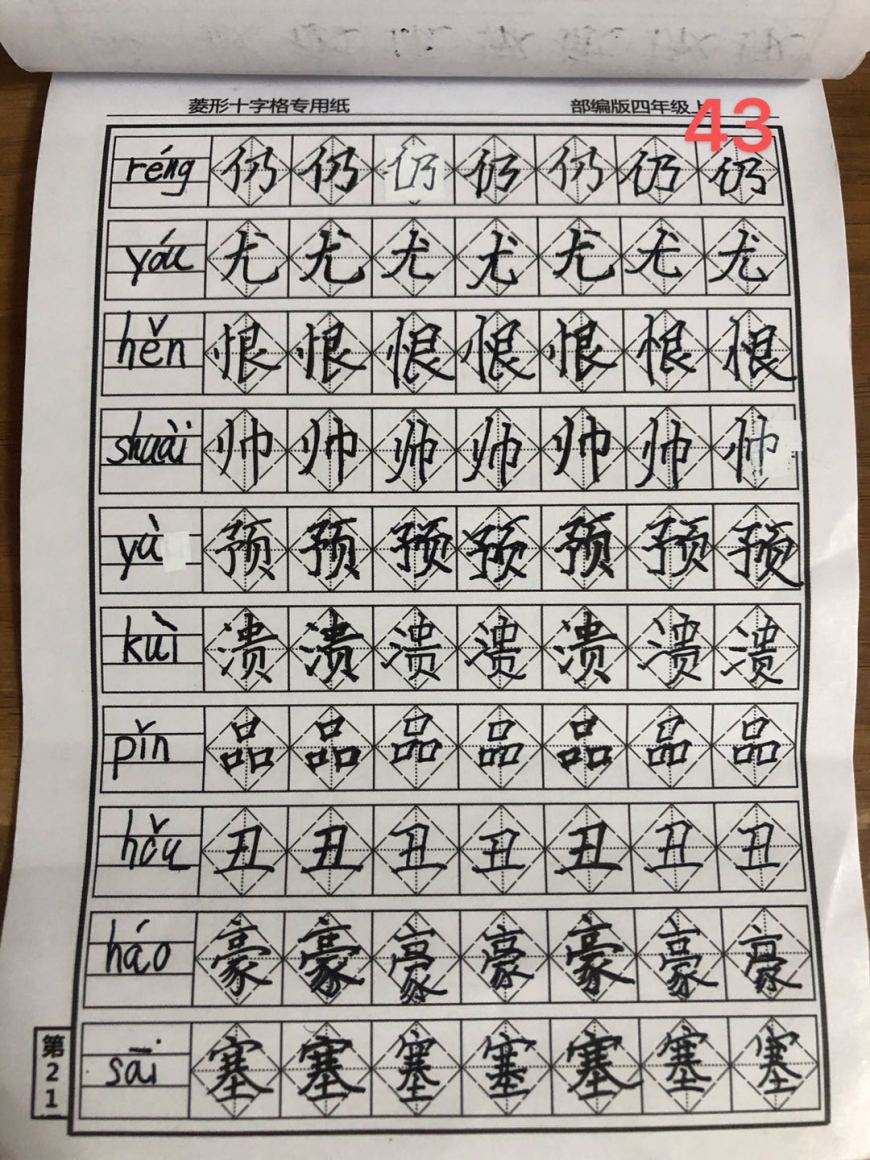 菱形十字格专用纸 部编版四年级上
43
réng 仍 仍 仍 仍 仍 仍 仍
yóu 尤 尤 尤 尤 尤 尤 尤
hěn 恨 恨 恨 恨 恨 恨 恨
shuài 帅 帅 帅 帅 帅 帅 帅
yù 预 预 预 预 预 预 预
kuì 溃 溃 溃 溃 溃 溃 溃
pǐn 品 品 品 品 品 品 品
hǒu 丑 丑 丑 丑 丑 丑 丑
háo 豪 豪 豪 豪 豪 豪 豪
sāi 塞 塞 塞 塞 塞 塞 塞
第21